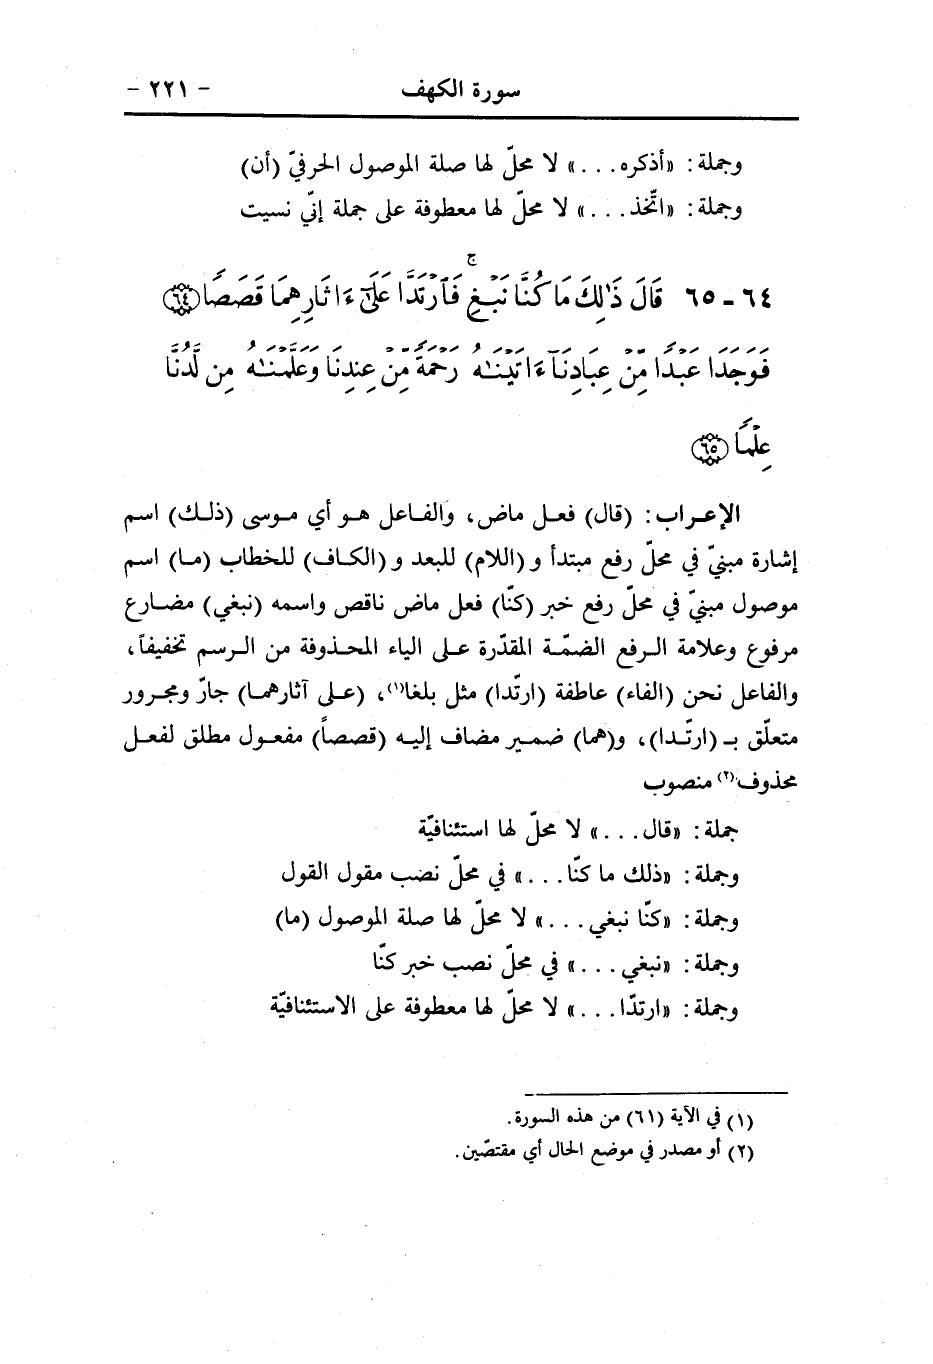 سورة الكهف - ٢٢١ -
وجملة: «أذكره...» لا محلّ لها صلة الموصول الحرفيّ (أن)
وجملة: «اتّخذ...» لا محلّ لها معطوفة على جملة إنّي نسيت
٦٤ - ٦٥ قَالَ ذَٰلِكَ مَا كُنَّا نَبْغِ ۚ فَٱرْتَدَّا عَلَىٰٓ ءَاثَارِهِمَا قَصَصًا ﴿٦٤﴾
فَوَجَدَا عَبْدًا مِّنْ عِبَادِنَآ ءَاتَيْنَٰهُ رَحْمَةً مِّنْ عِندِنَا وَعَلَّمْنَٰهُ مِن لَّدُنَّا
عِلْمًا ﴿٦٥﴾
الإعـراب: (قال) فعـل ماض، والفـاعل هـو أي مـوسى (ذلـك) اسم
إشارة مبنيّ في محلّ رفع مبتدأ و (اللام) للبعد و (الكـاف) للخطاب (مـا) اسم
موصول مبنيّ في محلّ رفع خبر (كنّا) فعل ماض ناقص واسمه (نبغي) مضـارع
مرفوع وعلامة الـرفع الضمّـة المقدّرة عـلى الياء المحـذوفة من الـرسم تخفيفاً،
والفاعل نحن (الفاء) عاطفة (ارتّدا) مثل بلغا(١)، (عـلى آثارهمـا) جارّ ومجـرور
متعلّق بـ (ارتّـدا)، و(هما) ضمـير مضاف إليـه (قصصاً) مفعـول مطلق لفعـل
محذوف(٢) منصوب
جملة: «قال...» لا محلّ لها استئنافيّة
وجملة: «ذلك ما كنّا...» في محلّ نصب مقول القول
وجملة: «كنّا نبغي...» لا محلّ لها صلة الموصول (ما)
وجملة: «نبغي...» في محلّ نصب خبر كنّا
وجملة: «ارتدّا...» لا محلّ لها معطوفة على الاستئنافيّة
(١) في الآية (٦١) من هذه السورة.
(٢) أو مصدر في موضع الحال أي مقتصّين.